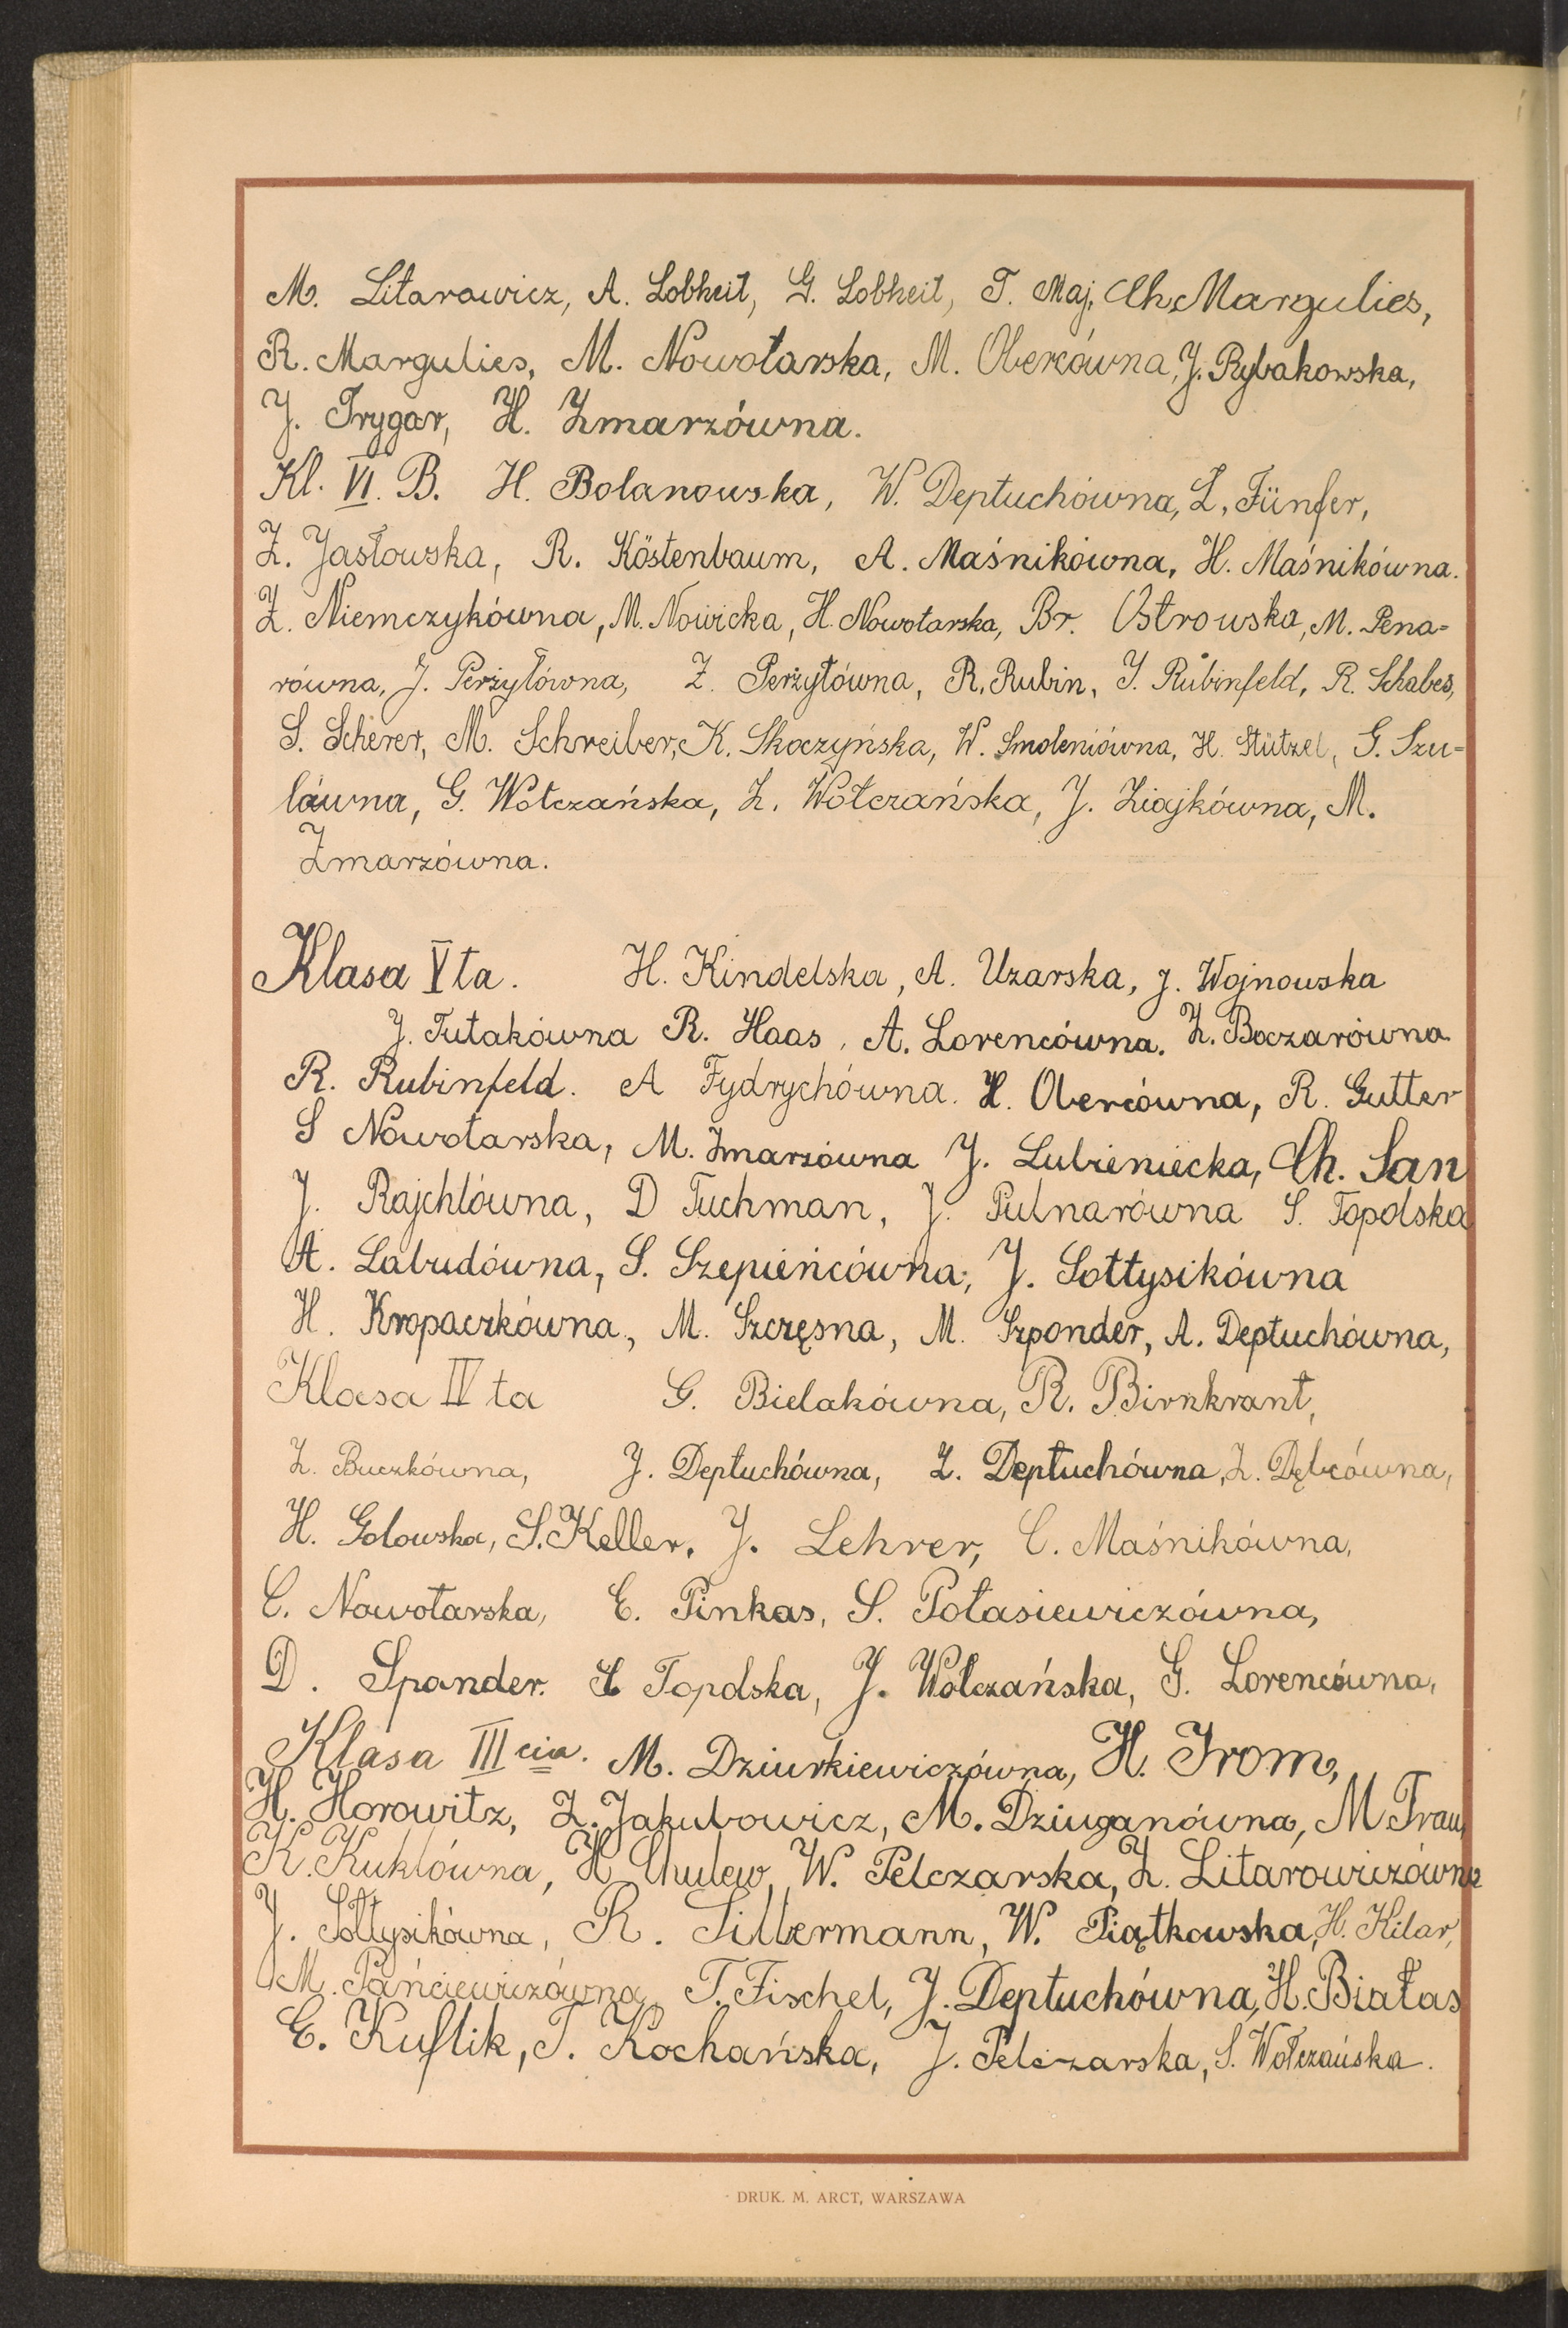 M. Litarowicz, A. Lobheit, G. Lobheit, T. Maj, Ch. Margulies,
R. Margulies, M. Nowotarska, M. Obercówna, J. Rybakowska,
J. Trygar, H. Zmarzówna.
Kl. VI. B. H. Bolanowska, W. Deptuchówna, L. Fünfer,
Z. Jasłowska, R. Köstenbaum, A. Maśnikówna, H. Maśnikówna.
Z. Niemczykówna, M. Nowicka, H. Nowotarska, Br. Ostrowska, M. Pena=
równa, J. Perżyłówna, Z. Perżyłówna, R. Rubin, J. Rubinfeld, R. Schabes,
S. Scherer, M. Schreiber, K. Skoczyńska, W. Smoleniówna, H. Stützel, G. Szu=
lówna, G. Wołczańska, Z. Wołczańska, J. Ziajkówna, M.
Zmarzówna.
Klasa V ta. H. Kindelska, A. Uzarska, J. Wojnowska
J. Tutakówna R. Haas, A. Lorencówna. Z. Boczarówna
R. Rubinfeld. A Fydrychówna. H. Obercówna, R. Gutter
S Nowotarska, M. Zmarzówna J. Lubieniecka, Ch. San
J. Rajchlówna, D Tuchman, J. Pulnarówna S. Topolska
A. Labudówna, S. Szepieńcówna, J. Sołtysikówna
H. Kropaczkówna, M. Szczęsna, M. Szponder, A. Deptuchówna,
Klasa IV ta G. Bielakówna, R. Birnkrant,
Z. Buczkówna, J. Deptuchówna, Z. Deptuchówna, Z. Dębcówna,
H. Golowska, S. Keller, J. Lehrer, C. Maśnikówna,
C. Nowotarska, E. Pinkas, S. Potasiewiczówna,
D. Spander. Topolska, J. Wołczańska, G. Lorencówna,
Klasa III cia. M. Dziurkiewiczówna, H. From,
H. Horowitz, Z. Jakubowicz, M. Dziuganówna, M Trau,
K. Kuklówna, H Chulew, W. Pelczarska, Z. Litarowiczówna
J. Sołtysikówna, R. Silbermann, W. Piątkowska, H. Kilar,
M. Pańciewiczówna, T. Fischel, J. Deptuchówna, H. Białas
E. Kuflik, T. Kochańska, J. Pelczarska, S. Wołczańska.
DRUK. M. ARCT, WARSZAWA